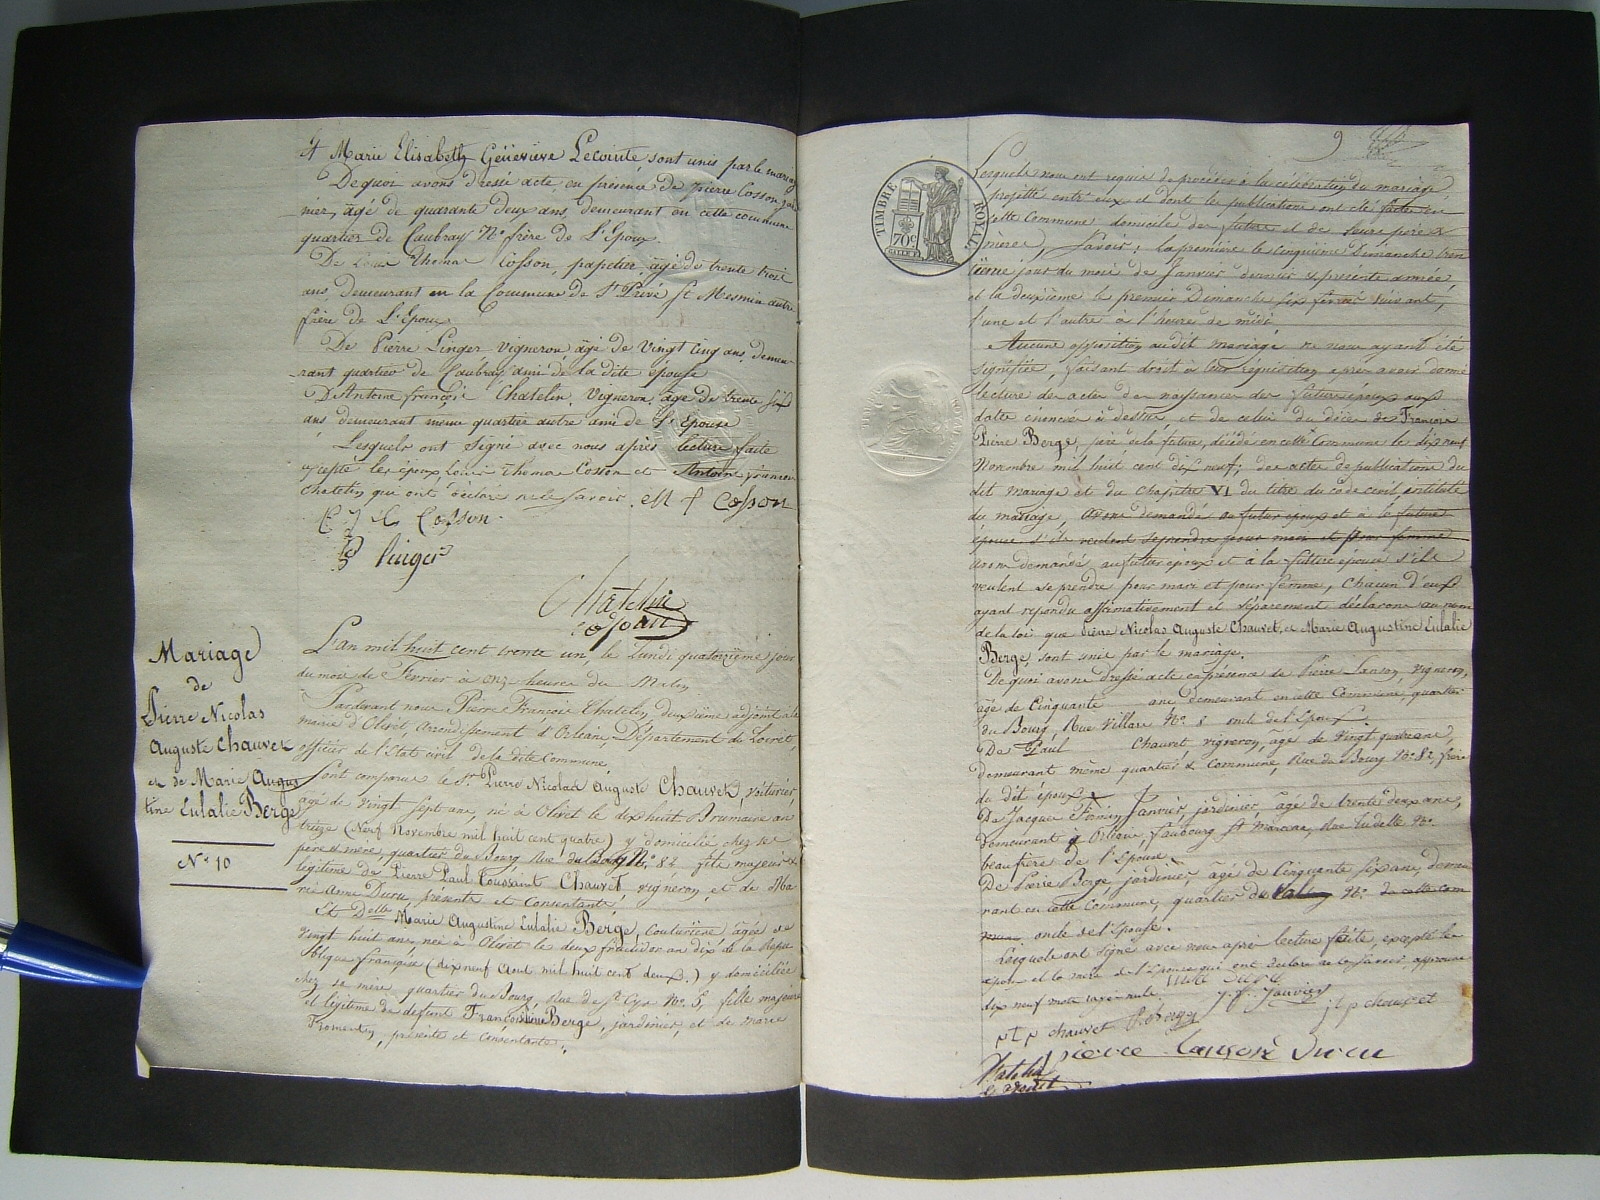 Et Marie Elisabeth Géneviève Lecointe sont unis par le mariage
De quoi avons dressé acte, en présence de Pierre Cosson,
âgé de quarante deux ans, demeurant en cette commune
quartier de Caubray N° frère de l'Epoux.
De Louis Thomas Cosson, papetier, âgé de trente trois
ans, demeurant en la Commune de St Privé St Mesmin autre
frère de l'Epoux
De Pierre Linger vigneron âgé de vingt cinq ans, demeu-
rant quartier de Caubray ami de la dite épouse
D'Antoine françois Chatelin, Vigneron, âgé de trente six
ans demeurant même quartier autre ami de l'Epouse
Lesquels ont signé avec nous après lecture faite
excepté les époux, Louis Thomas Cosson et Antoine françois
Chatelin qui ont déclaré ne le savoir. Cosson
Cosson
Linger
Chatelin
adjoint
Mariage
de
Pierre Nicolas
Auguste Chauvet
et de Marie Augus
tine Eulalie Bergé
N° 10
L'an mil huit cent trente un, le lundi quatorzième jour
du mois de Février à onze heures du Matin
Pardevant nous Pierre François Chatelin, deuxième adjoint à la
mairie d'Olivet, arrondissement d'Orléans, Département du Loiret,
officier de l'Etat civil de la dite Commune,
Sont comparus le Sr Pierre Nicolas Auguste Chauvet, voiturier,
âgé de vingt sept ans, né à Olivet le dix huit Brumaire an
treize (Neuf Novembre mil huit cent quatre) y domicilié chez ses
père & mère, quartier du Bourg, Rue du Bourg N° 82 fils majeur &
légitime de Pierre Paul Toussaint Chauvet, vigneron, et de Ma
rie Anne Duru, présents et consentants,
Et Delle Marie Augustine Eulalie Bergé, Couturière âgée de
vingt huit ans, née à Olivet le deux fructidor an dix de la Répu
blique française (dix neuf Aout mil huit cent deux.) y domiciliée
chez sa mère quartier du Bourg, Rue de St Cyr N° 5, fille majeure
et légitime de défunt François Pierre Bergé, jardinier, et de Marie
Froment, présente et consentante;
9
TIMBRE ROYAL
70c
Lesquels nous ont requis de procéder à la célébration du mariage
projetté entr'eux et dont les publications ont été faites en
cette Commune domicile des futurs et de leurs père &
mère, Savoir: la première le cinquième Dimanche tren
tième jour du mois de Janvier dernier présente année,
et la deuxième le premier Dimanche six février suivant,
l'une et l'autre à l'heure de midi
Aucune opposition audit mariage ne nous ayant été
signifiée, faisant droit à leur réquisition après avoir donné
lecture des actes de naissances des futurs époux aux
dates énoncées à dessus, et de celui du décès de François
Pierre Bergé, père de la future, décédé en cette Commune le dix neuf
Novembre mil huit cent dix neuf; des actes de publications du
dit mariage et du chapitre VI du titre du code civil, intitulé
du mariage, avons demandé au futur époux et à la future
épouse s'ils veulent se prendre pour mari et pour femme
avons demandé au futur époux et à la future épouse s'ils
veulent se prendre pour mari et pour femme, Chacun d'eux
ayant répondu affirmativement et séparément déclarons au nom
de la loi que Pierre Nicolas Auguste Chauvet, et Marie Augustine Eulalie
Bergé, sont unis par le mariage.
De quoi avons dressé acte en présence de Pierre Lanson, vigneron,
âgé de Cinquante ans demeurant en cette Commune, quartier
du Bourg, Rue Villars N° 8 oncle de l'Epoux.
De Paul Chauvet vigneron, âgé de vingt quatre ans,
demeurant même quartier & Commune, Rue du Bourg N° 82, frère
du dit époux
De Jacques Firmin Janvier, jardinier, âgé de trente deux ans,
demeurant à Orléans, faubourg St Marceau, Rue Tudelle N°
beau frère de l'Epouse
De Pierre Bergé, jardinier, âgé de Cinquante six ans, demeu
rant en cette Commune, quartier du Val N° de cette com
mune oncle de l'Epouse.
Lesquels ont signé avec nous après lecture faite, excepté les
époux et la mère de l'Epouse qui ont déclaré ne le savoir approuvé
dix neuf mots rayés nuls.
J. f. Janvier
p chauvet
chauvet
pierre Lanson Duru
Chatelin
adjoint